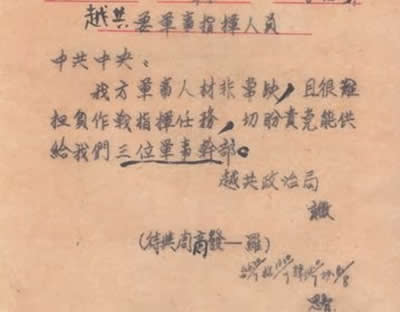 越共要軍事指揮人員
中共中央：
我方軍事人材非常缺，且很難
担負作戰指揮任務，切盼貴党能供
給我們三位軍事幹部。
越共政治局
(待共周商發—羅)